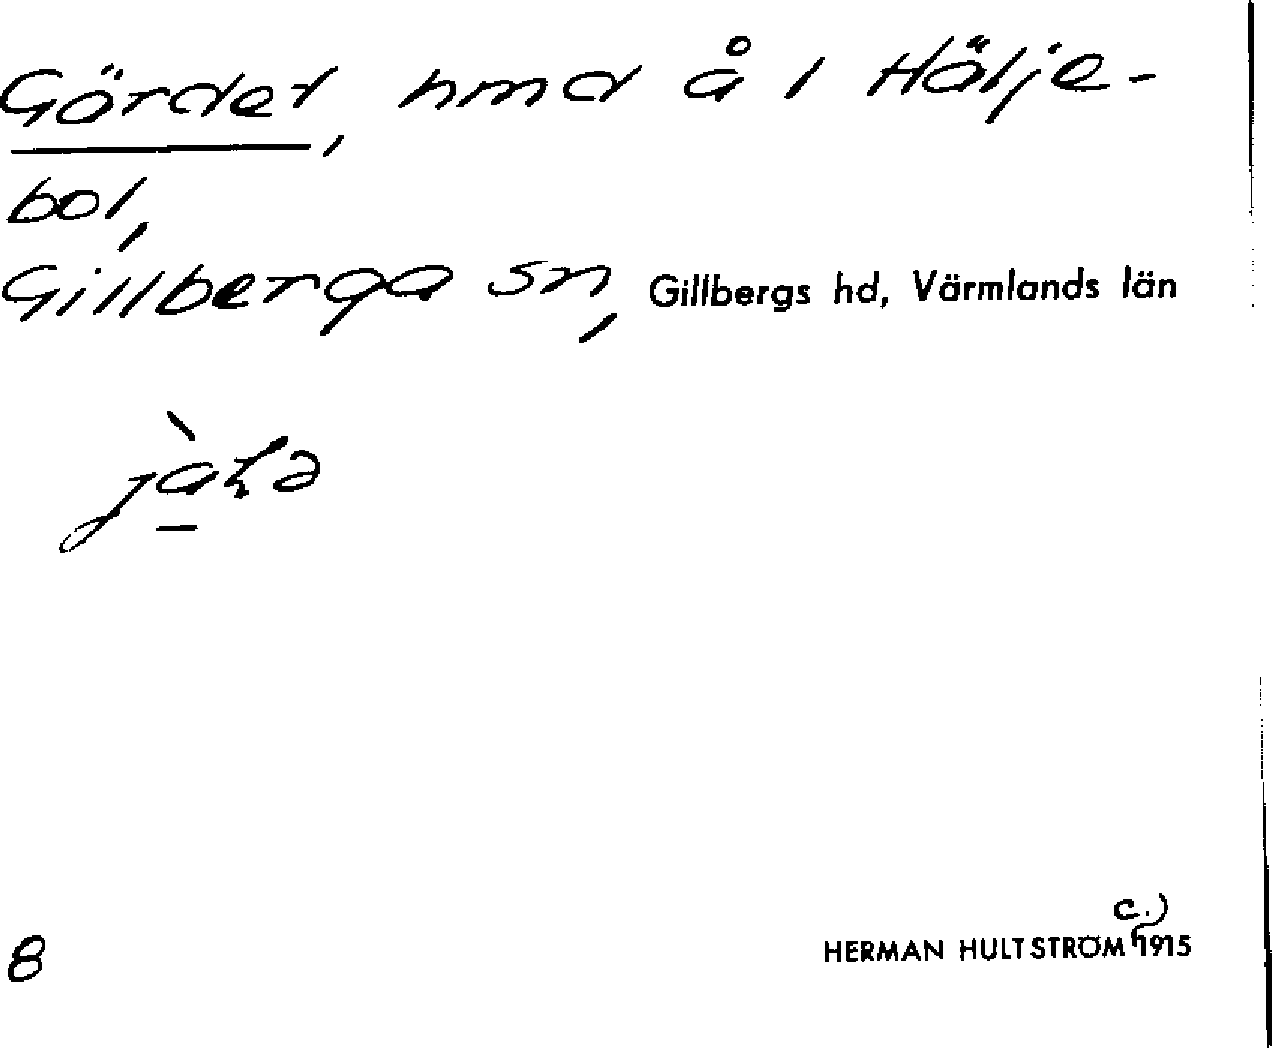 Gärdet, hmd å i Hälje-
bol,
Gillberga sn, Gillbergs hd, Värmlands län
8
c.)
HERMAN HULTSTRÖM 1915